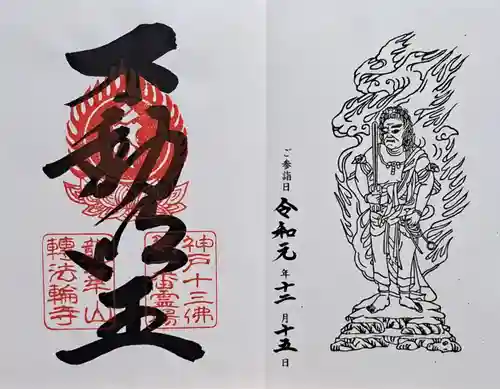 不動明王
神戸十三佛
番霊場
龍華山
轉法輪寺
ご参詣日 令和元年十二月十五日